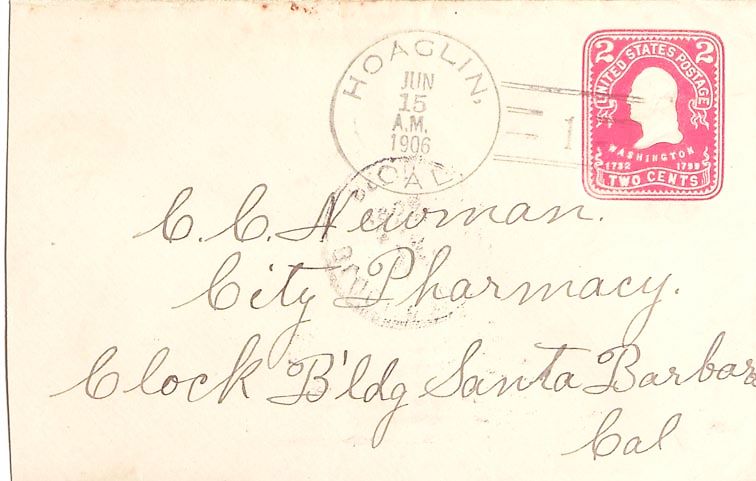 HOAGLIN,
JUN
15
A.M.
1906
CAL.
2 2
UNITED STATES POSTAGE
WASHINGTON
1732 1799
TWO CENTS
1
C. C. Newman.
City Pharmacy.
Clock B'ldg Santa Barbara
Cal